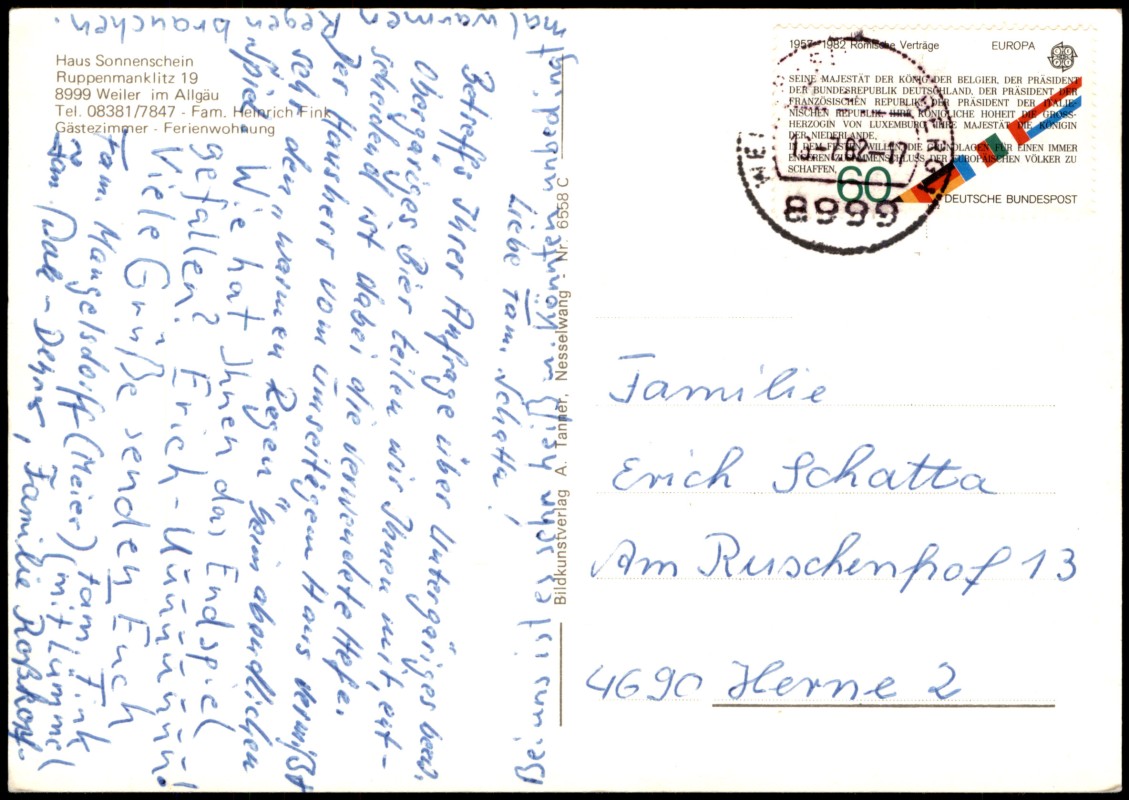 Haus Sonnenschein
Ruppenmanklitz 19
8999 Weiler im Allgäu
Tel. 08381/7847 - Fam. Heinrich Fink
Gästezimmer - Ferienwohnung
Liebe Fam. Schatta!
Betreffs Ihrer Anfrage über Untergäriges bzw.
Obergäriges Bier teilen wir Ihnen mit, ent-
scheidend ist dabei die verwendete Hefe.
Der Hausherr vom umseitigem Haus vermißt
sehr den "warmen Regen" beim abendlichen
Spiel
Wie hat Ihnen das Endspiel
gefallen? Erich-Üüüüüüü!
Viele Grüße senden Euch
Fam. Mangelsdorff (Meier) Fam. Fink
Fam. (mit Lümmel)
Familie Roßkopf.
heim ist er sehr heiß, wir könnten unbedingt
mal warmen Regen brauchen.
Bildkunstverlag A. Tanner, Nesselwang - Nr. 6558 C
1957-1982 Römische Verträge EUROPA
SEINE MAJESTÄT DER KÖNIG DER BELGIER, DER PRÄSIDENT
DER BUNDESREPUBLIK DEUTSCHLAND, DER PRÄSIDENT DER
FRANZÖSISCHEN REPUBLIK, DER PRÄSIDENT DER ITALIE-
NISCHEN REPUBLIK, IHRE KÖNIGLICHE HOHEIT DIE GROSS-
HERZOGIN VON LUXEMBURG, IHRE MAJESTÄT DIE KÖNIGIN
DER NIEDERLANDE,
IN DEM FESTEN WILLEN, DIE GRUNDLAGEN FÜR EINEN IMMER
ENGEREN ZUSAMMENSCHLUSS DER EUROPÄISCHEN VÖLKER ZU
SCHAFFEN,
60
DEUTSCHE BUNDESPOST
8999
Familie
Erich Schatta
Am Ruschenhof 13
4690 Herne 2